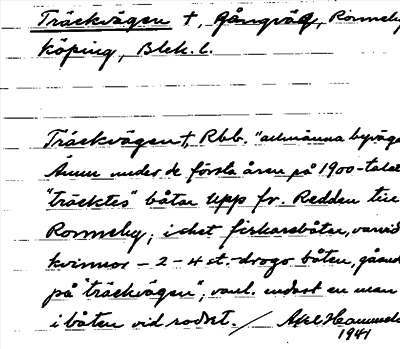 Träckvägen †, gångväg, Ronneby
köping, Blek. l.
Träckvägen †, Rbb. "allmänna byväge
Ännu under de första åren på 1900-talet
"träcktes" båtar upp fr. Redden till
Ronneby, i det fiskarebåten, varvid
kvinnor – 2-4 st. – drogo båten, gående
på "träckvägen", varvid endast en man
i båten vid rodret. / Axel
1941